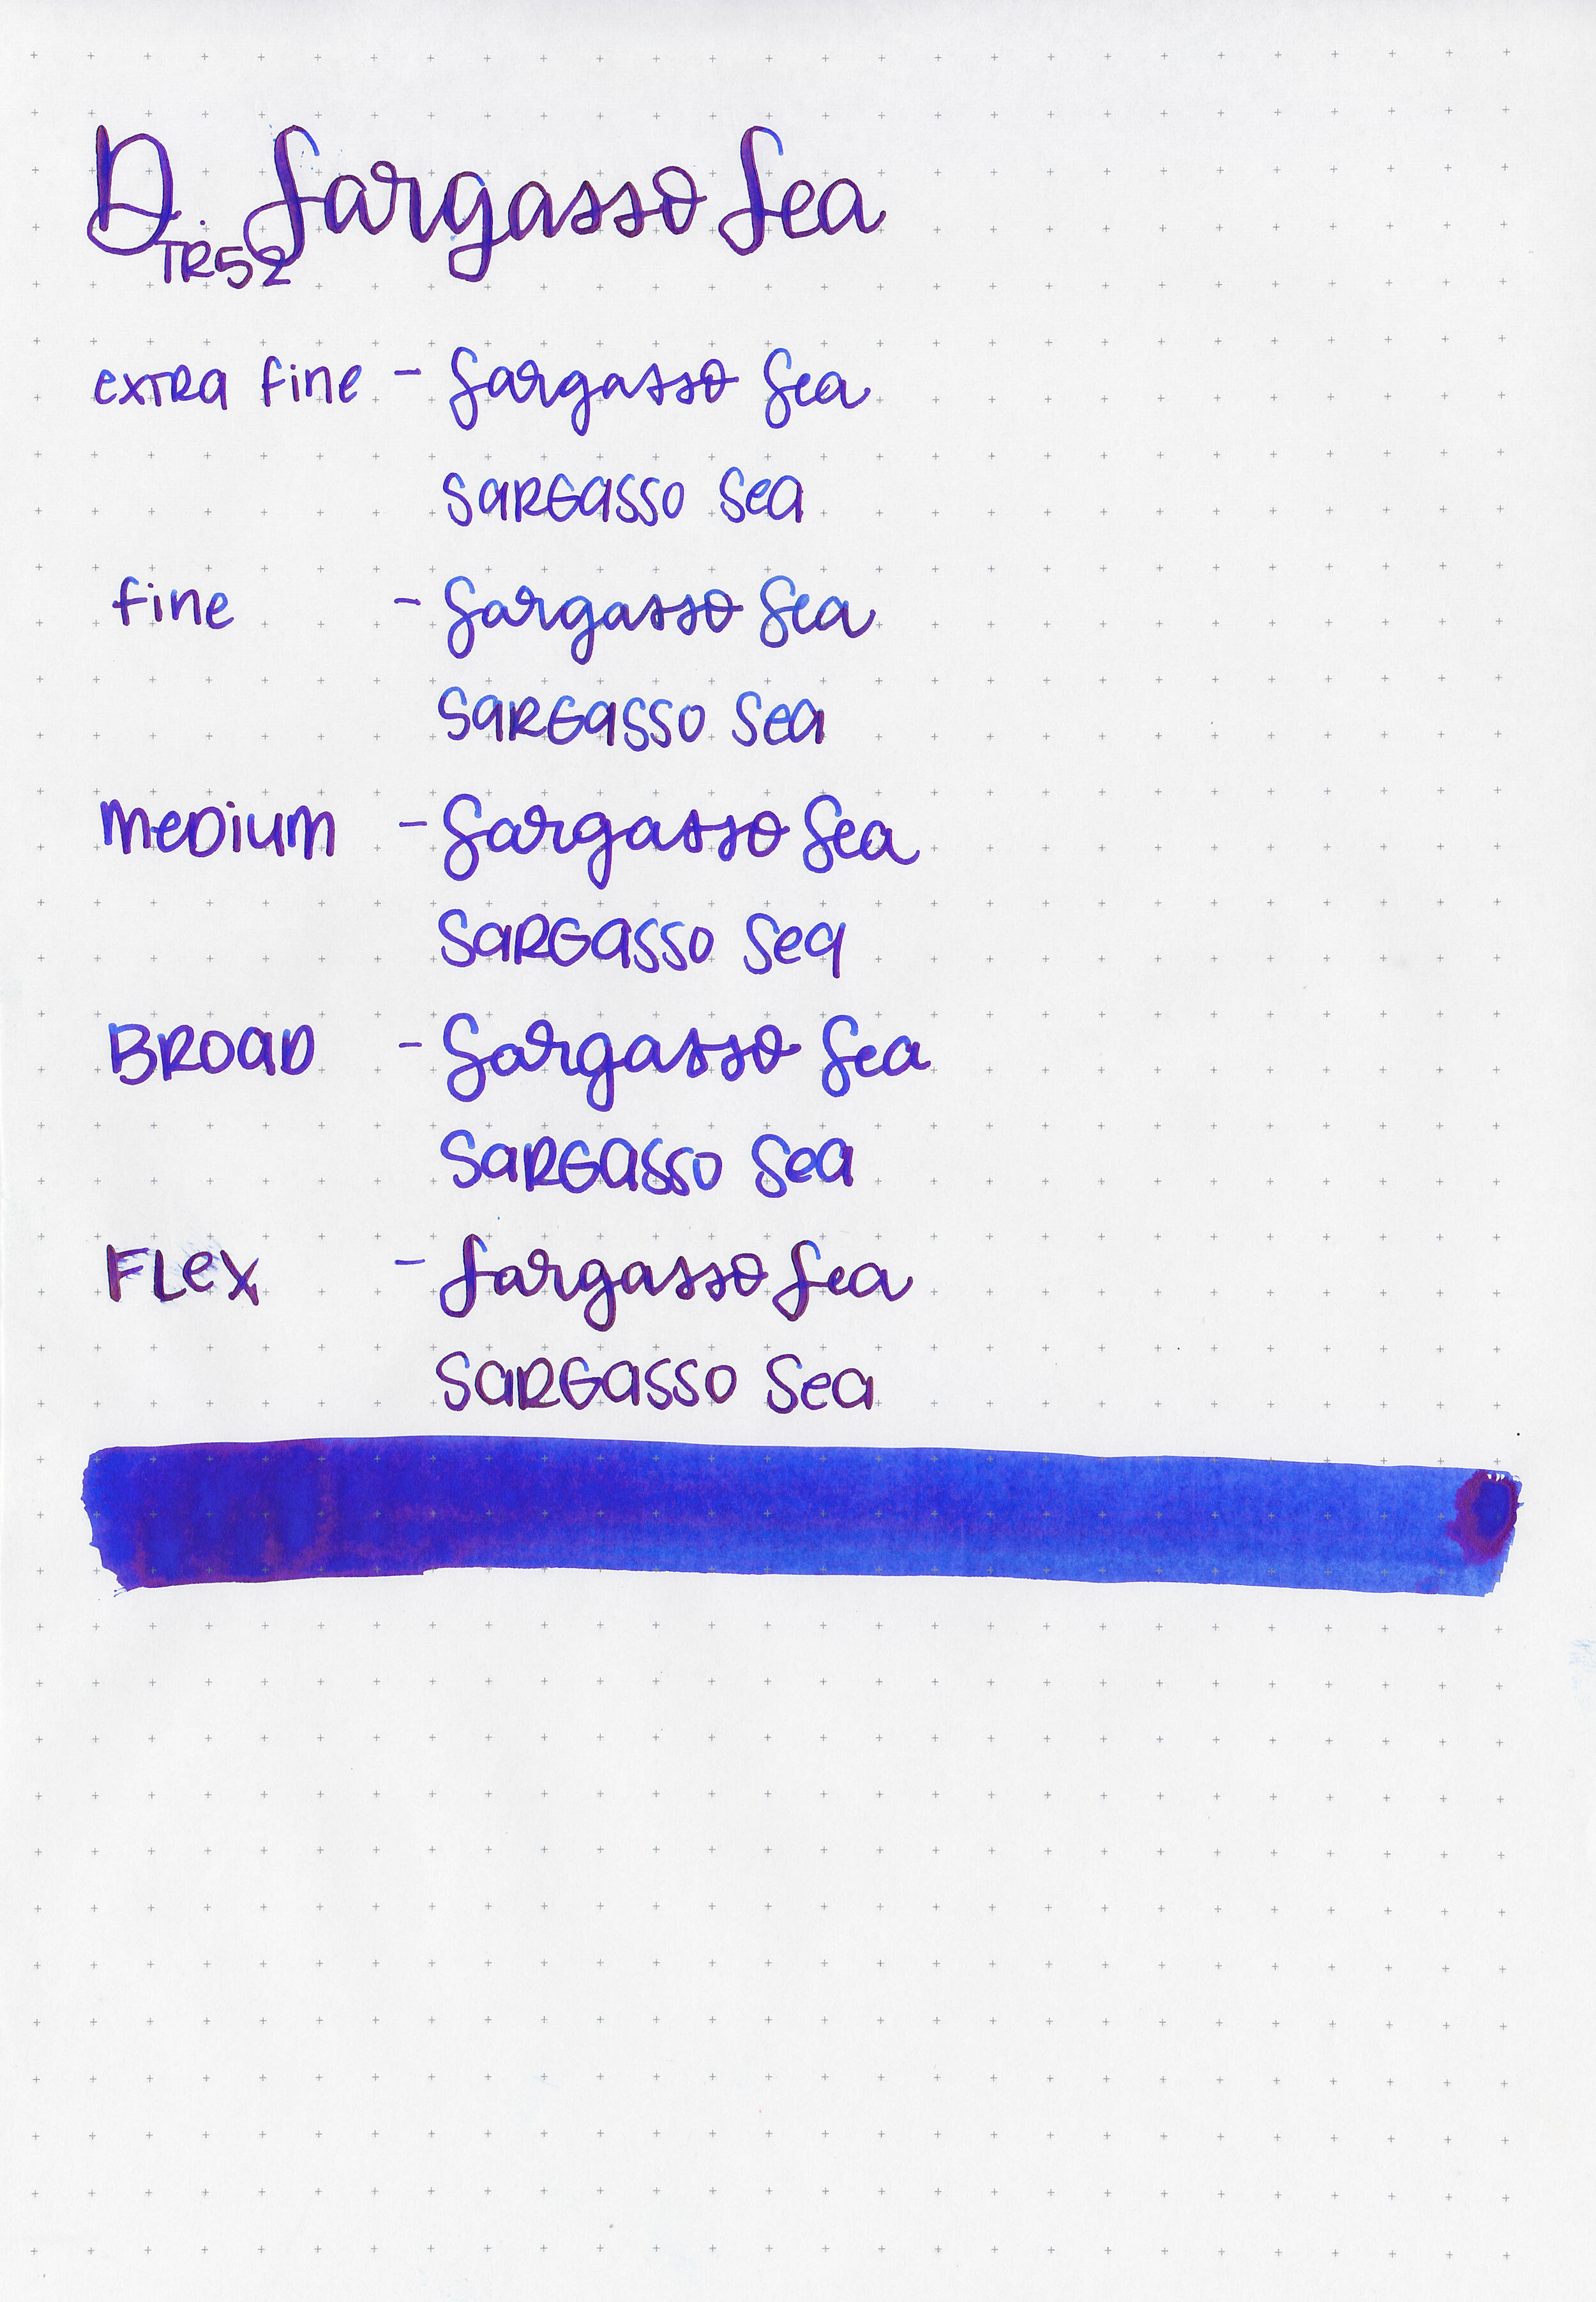 D. Sargasso Sea
TR52
extra fine - Sargasso Sea
SaRGaSSO Sea
fine - Sargasso Sea
SaRGaSSO Sea
MeDium - Sargasso Sea
SaRGaSSO Sea
BROaD - Sargasso Sea
SaRGaSSO Sea
FLex - Sargasso Sea
SaRGaSSO Sea